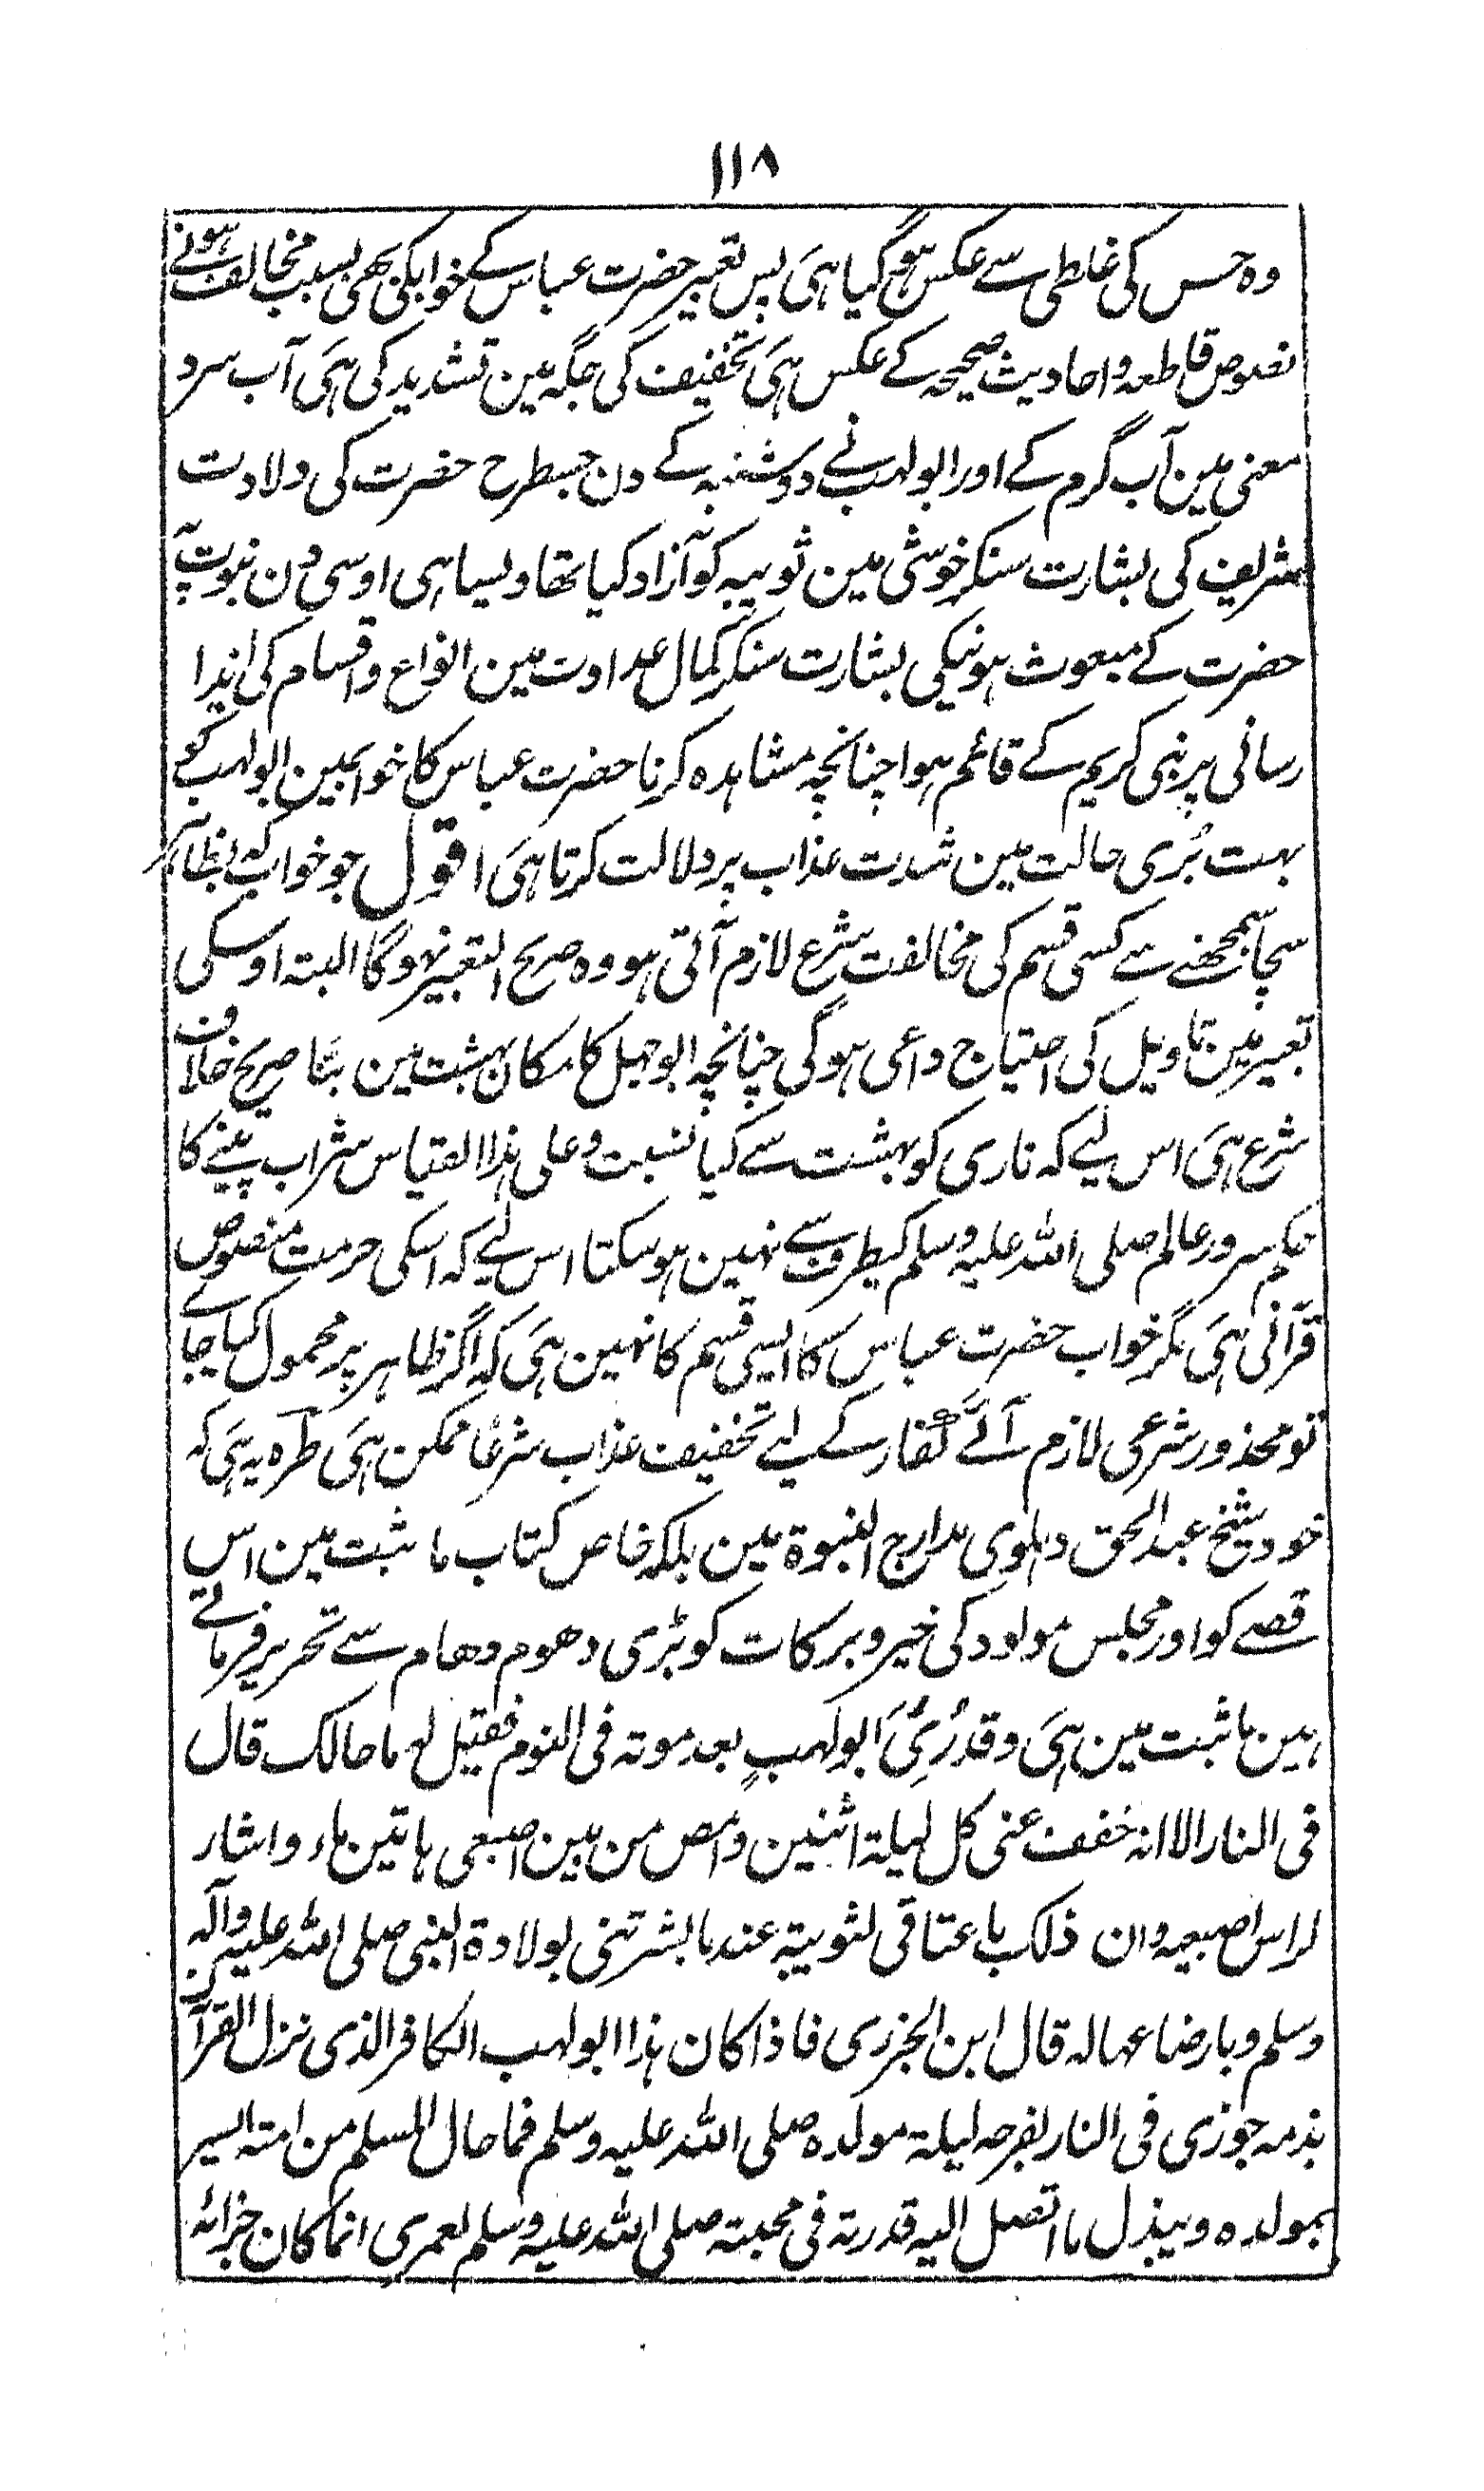 ۱۱۸
وہ حس کی غلطی سے عکس ہو گیا ہی پس تعبیر حضرت عباس کے خوابکی بھی بسبب مخالف ہونے
نصوص قاطعہ واحادیث صحیحہ کے عکس ہی تخفیف کی جگہ مین تشدید کی ہی آب سرد
معنی مین آب گرم کے اور ابولہب نے دوشنبہ کے دن جسطرح حضرت کی ولادت
شریف کی بشارت سنکر خوشی مین ثوبیہ کو آزاد کیا تھا ویسا ہی اوسی دن نبوت پر
حضرت کے مبعوث ہونیکی بشارت سنکر کمال عداوت مین انواع واقسام کی ایذا
رسانی پر نبی کریم کے قائم ہوا چنانچہ مشاہدہ کرنا حضرت عباس کا خوابمین ابولہب کو
بہت بُری حالت مین شدت عذاب پر دلالت کرتا ہی اقول جو خواب کہ بظاہر
سچا سمجھنے سے کسی قسم کی مخالفت شرع لازم آتی ہو وہ صریح التعبیر نہوگا البتہ اوسکی
تعبیر مین تاویل کی احتیاج داعی ہوگی چنانچہ ابوجہل کا مکان بہشت مین بننا صریح خلاف
شرع ہی اس لیے کہ ناری کو بہشت سے کیا نسبت وعلی ہذا القیاس شراب پینے کا
حکم سرور عالم صلی اللہ علیہ وسلم کیطرف سے نہین ہو سکتا اس لیے کہ اسکی حرمت منصوص
قرآنی ہی مگر خواب حضرت عباس کا ایسی قسم کا نہین ہی کہ اگر ظاہر پر محمول کیا جاے
تو محذور شرعی لازم آئے کفار کے لیے تخفیف عذاب شرعًا ممکن ہی طرہ یہ ہی کہ
خود شیخ عبد الحق دہلوی مدارج النبوۃ مین بلکہ خاص کتاب ما ثبت مین اس
قصے کو اور مجلس مولود کی خیر وبرکات کو بڑی دھوم دھام سے تحریر فرماتے
ہین ما ثبت مین ہی وقد رُئِیَ ابولہبٍ بعد موتہ فی النوم فقیل لہ ما حالک قال
فی النار الا انہ خفف عنی کل لیلۃ اثنین وامص من بین اصبعی ہاتین ماء واشار
لراس اصبعیہ وان ذلک باعتاقی لثویبۃ عند ما بشرتنی بولادۃ النبی صلی اللہ علیہ وآلہ
وسلم وبارضاعہا لہ قال ابن الجزری فاذا کان ہذا ابولہب الکافر الذی نزل القرآن
بذمہ جوزی فی النار بفرحہ لیلۃ مولدہ صلی اللہ علیہ وسلم فما حال المسلم من امتہ یسر
بمولدہ ویبذل ما اتصل الیہ قدرتہ فی محبتہ صلی اللہ علیہ وسلم لعمری انما کان جزائہ